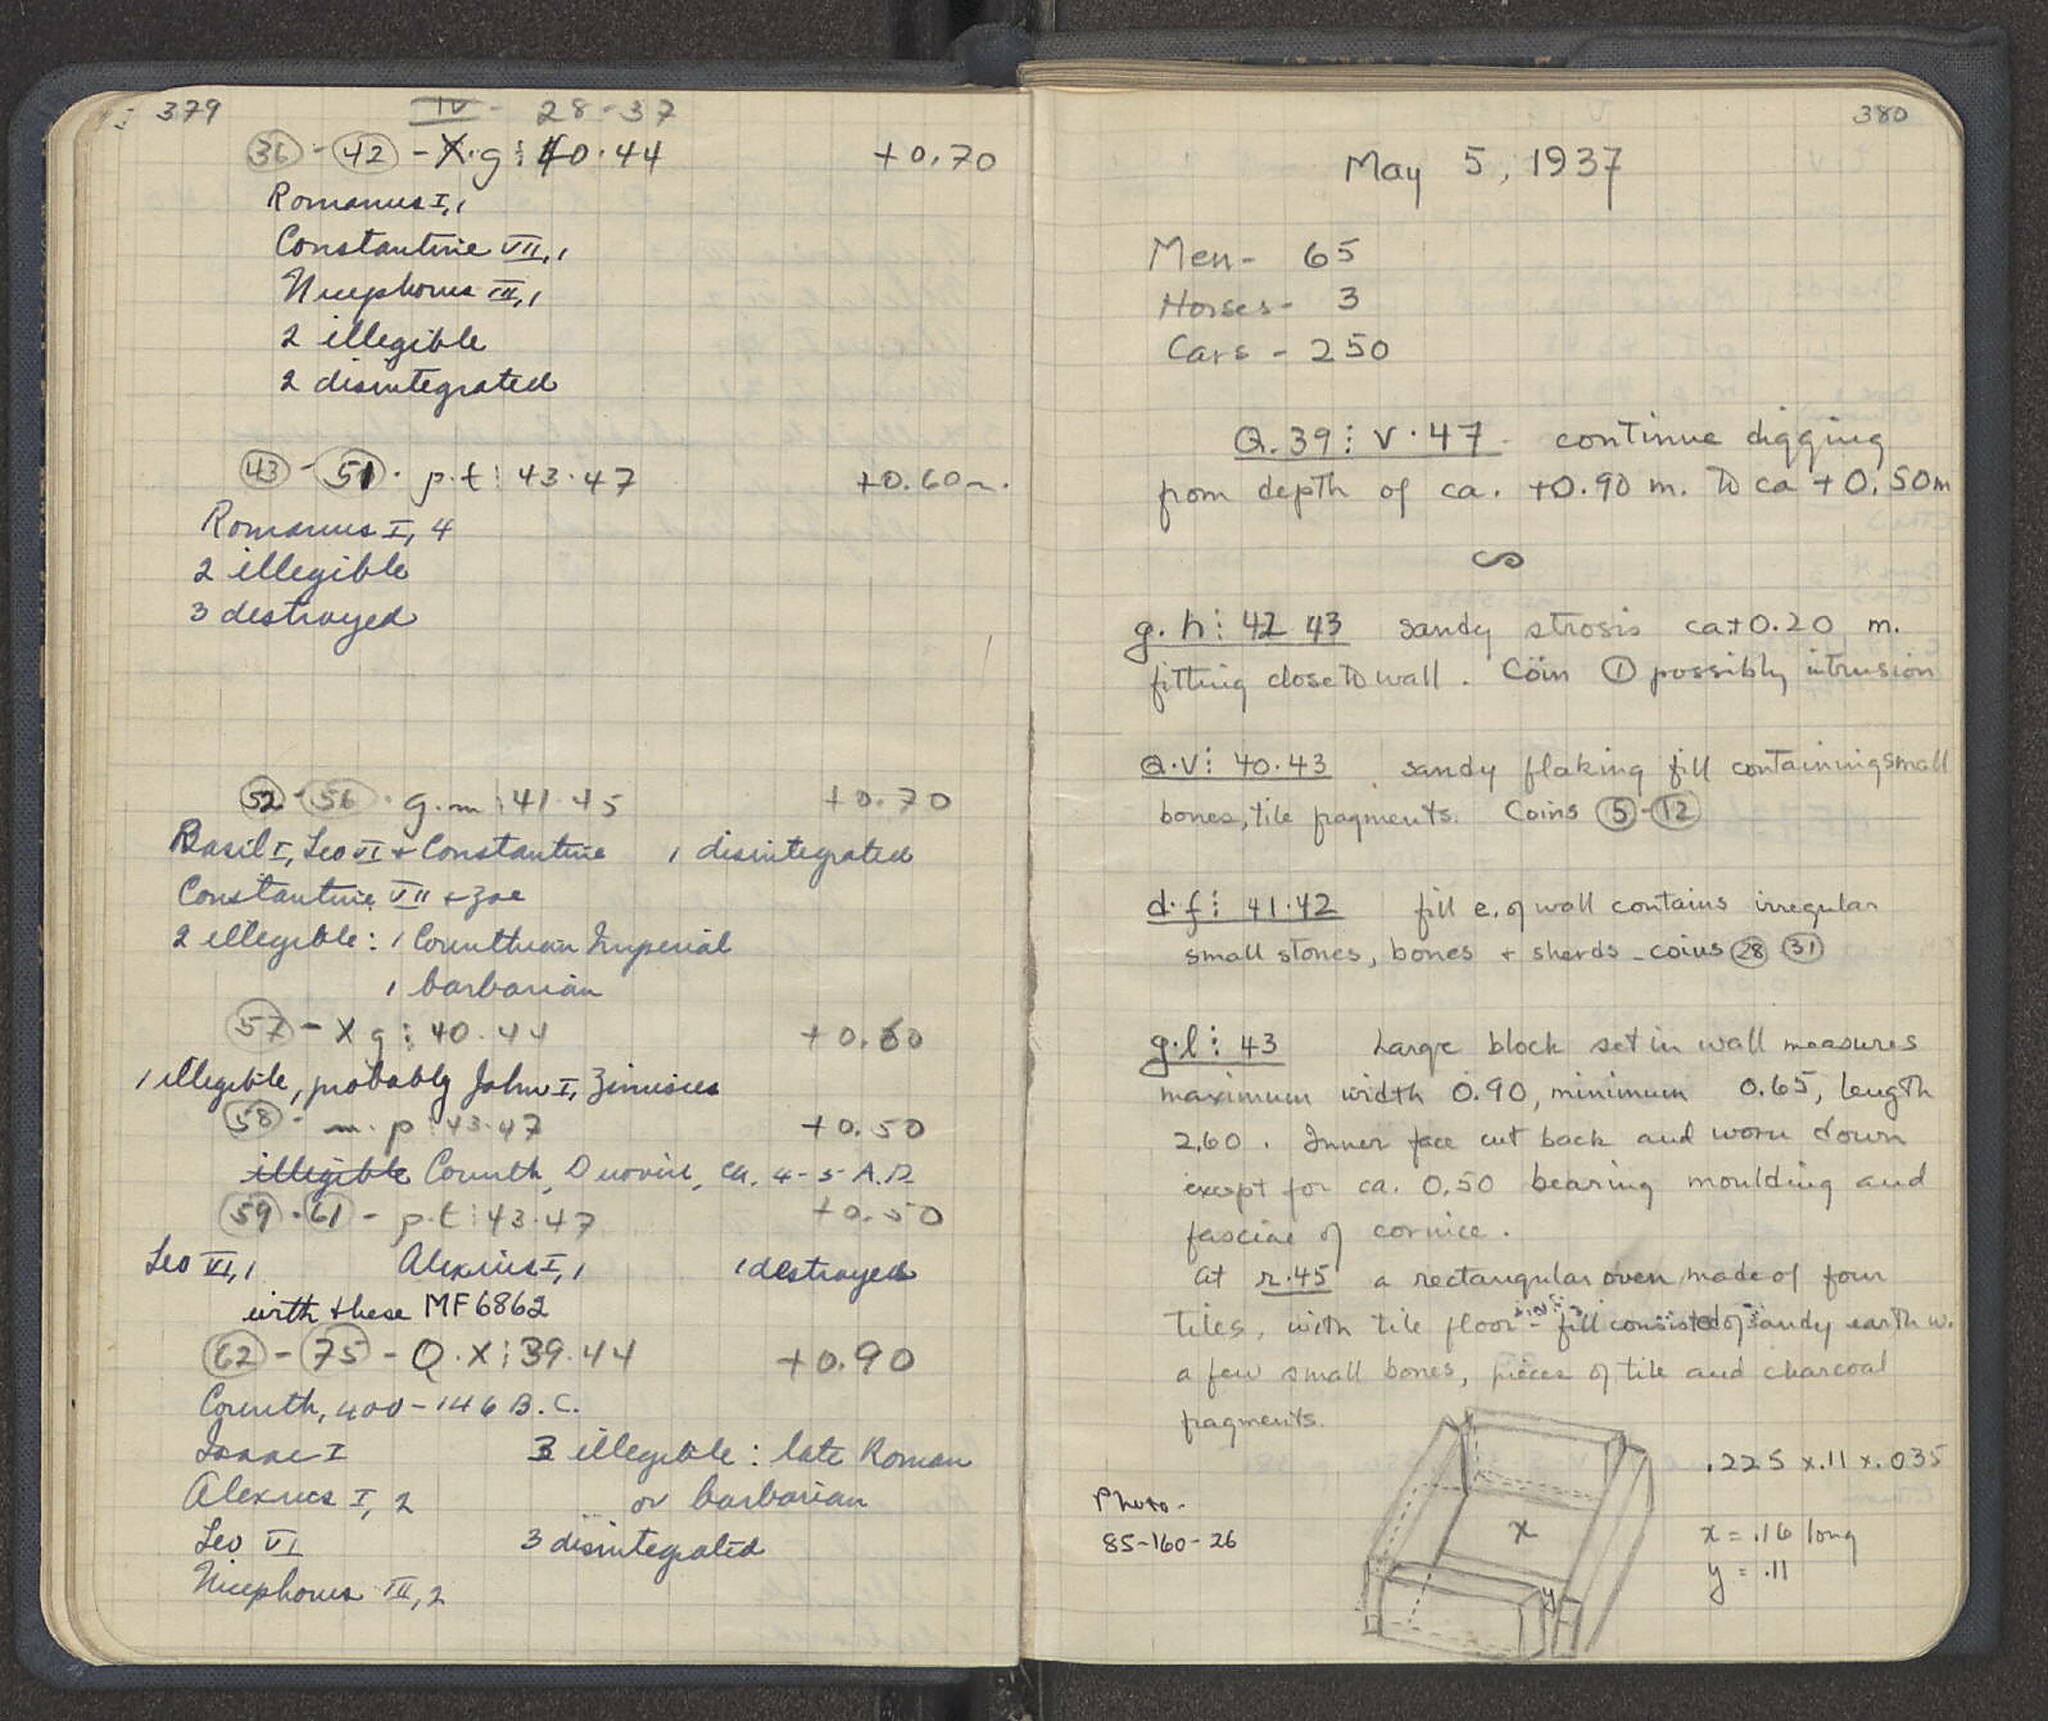 379
IV - 28-37
36 - 42 - X·g ⋮ 40·44 +0.70
Romanus I, 1
Constantine VII, 1
Nicephorus III, 1
2 illegible
2 disintegrated
43 - 51 · p·t ⋮ 43·47 +0.60 m.
Romanus I, 4
2 illegible
3 destroyed
52 - 56 · g·m ⋮ 41·45 +0.70
Basil I, Leo VI + Constantine 1 disintegrated
Constantine VII + Zoe
2 illegible: 1 Corinthian Imperial
1 barbarian
57 - X g ⋮ 40·44 +0.60
1 illegible, probably John I, Zimisces
58 - m·p ⋮ 43·47 +0.50
illegible Corinth, Duovir, ca. 4-5 A.D.
59 · 61 - p·t ⋮ 43·47 +0.50
Leo VI, 1 Alexius I, 1 1 destroyed
with these MF6862
62 - 75 - Q·X ⋮ 39·44 +0.90
Corinth, 400-146 B.C.
Isaac I 3 illegible: late Roman
Alexius I, 2 or barbarian
Leo VI 3 disintegrated
Nicephorus III, 2
380
May 5, 1937
Men - 65
Horses - 3
Cars - 250
Q.39 ⋮ V·47 - continue digging
from depth of ca. +0.90 m. to ca +0.50m
g.h ⋮ 42 43 sandy strosis ca +0.20 m.
fitting close to wall. Coin 1 possibly intrusion
Q·V ⋮ 40·43 sandy flaking fill containing small
bones, tile fragments. Coins 5 - 12
d·f ⋮ 41·42 fill e. of wall contains irregular
small stones, bones + sherds - coins 28 31
g·l ⋮ 43 Large block set in wall measures
maximum width 0.90, minimum 0.65, length
2.60. Inner face cut back and worn down
except for ca. 0.50 bearing moulding and
fasciae of cornice.
At r.45 a rectangular oven made of four
tiles, with tile floor - fill consisted of sandy earth w.
a few small bones, pieces of tile and charcoal
fragments.
.225 x .11 x .035
Photo -
85-160-26
x
x = .16 long
y = .11
y